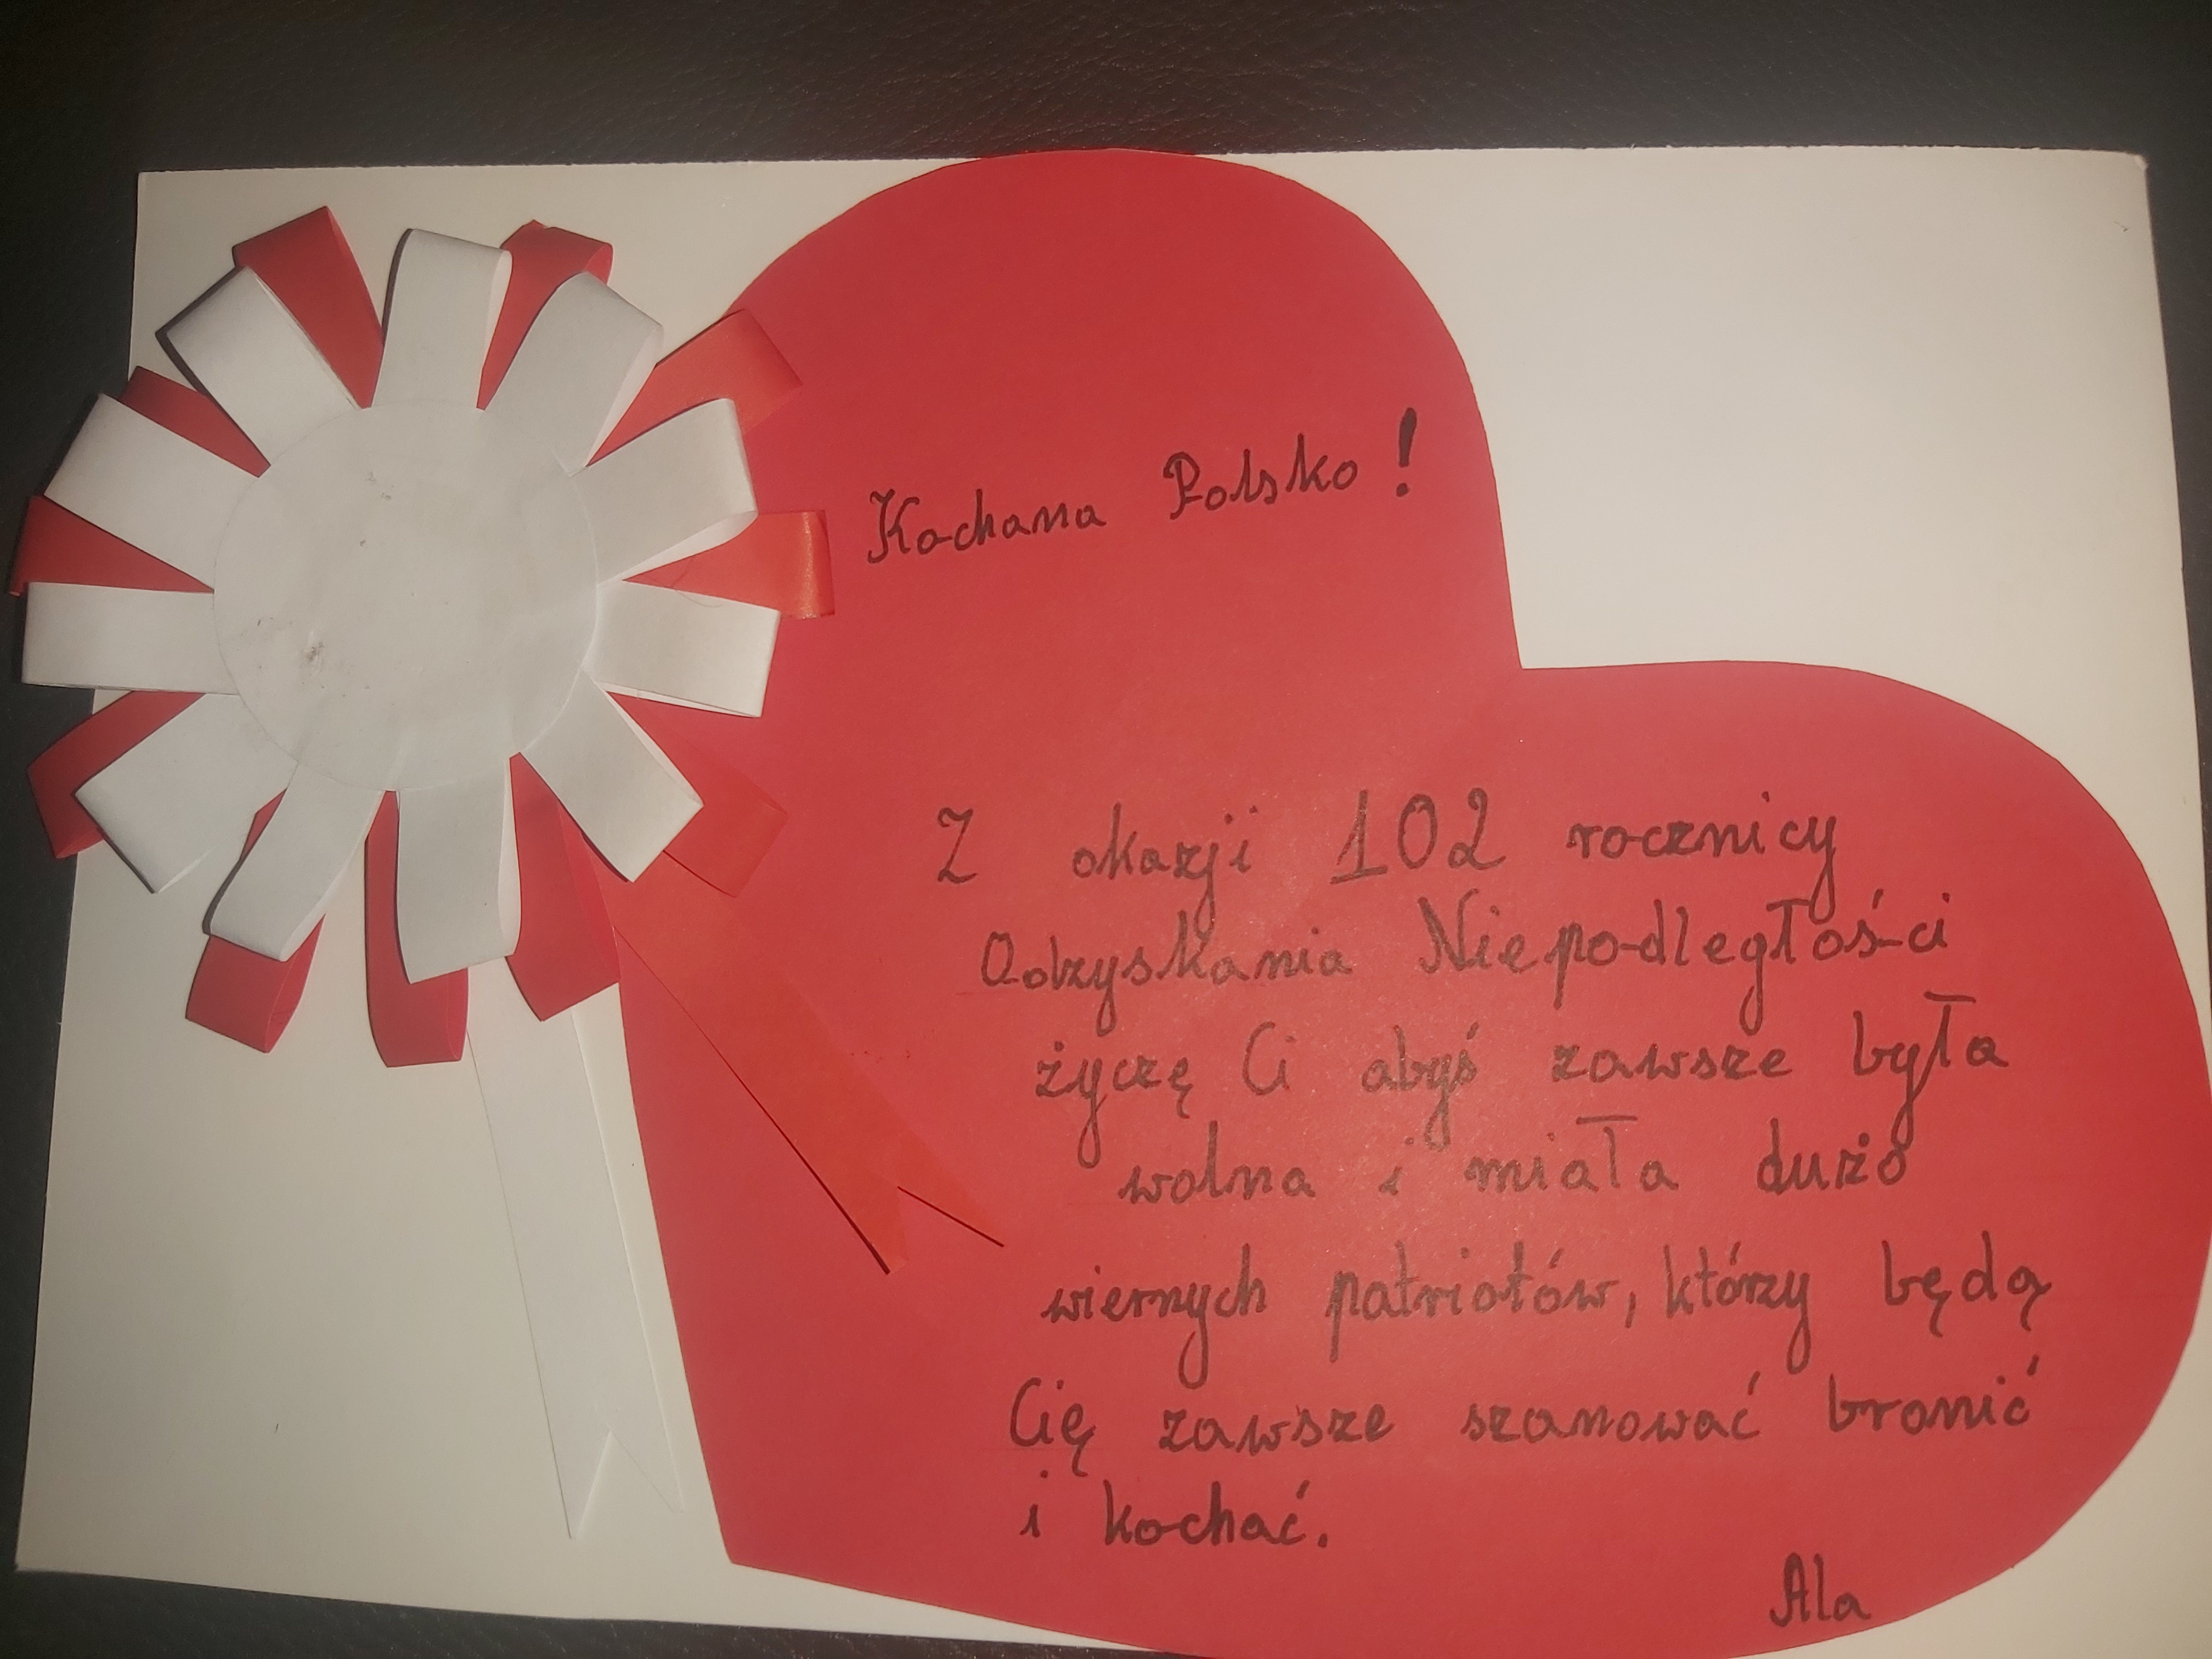 Kochana Polsko!
Z okazji 102 rocznicy
Odzyskania Niepodległości
życzę Ci abyś zawsze była
wolna i miała dużo
wiernych patriotów, którzy będą
Cię zawsze szanować bronić
i kochać.
Ala